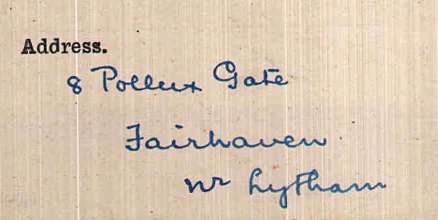 Address.
8 Pollux Gate
Fairhaven
nr Lytham